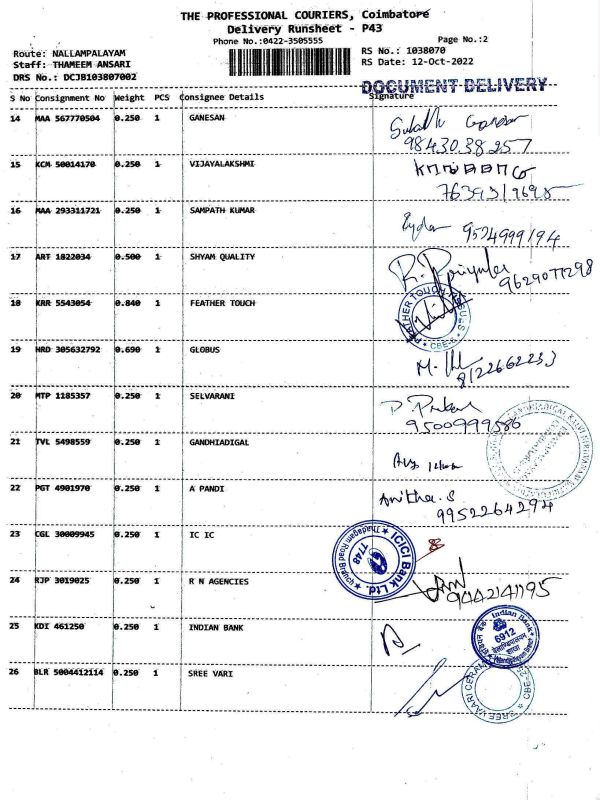 THE PROFESSIONAL COURIERS, Coimbatore
Delivery Runsheet - P43
Phone No.:0422-3505555 Page No.:2
Route: NALLAMPALAYAM RS No.: 1038070
Staff: THAMEEM ANSARI RS Date: 12-Oct-2022
DRS No.: DCJB103807002
DOCUMENT DELIVERY
S No Consignment No Weight PCS Consignee Details Signature
14 MAA 567770504 0.250 1 GANESAN
98430 38257
15 KCM 50014170 0.250 1 VIJAYALAKSHMI
16 MAA 293311721 0.250 1 SAMPATH KUMAR 9524999194
17 ART 1822034 0.500 1 SHYAM QUALITY R. Priyanka
18 KRR 5543054 0.840 1 FEATHER TOUCH
FEATHER TOUCH CBE-6
19 HRD 305632792 0.690 1 GLOBUS
8122662233
20 MTP 1185357 0.250 1 SELVARANI
9500999586
21 TVL 5498559 0.250 1 GANDHIADIGAL
22 PGT 4901970 0.250 1 A PANDI Anitha.S
9952264294
23 CGL 30009945 0.250 1 IC IC
ICICI Bank Ltd. Thadagam Road Branch 7748
24 RJP 3019025 0.250 1 R N AGENCIES
25 KDI 461250 0.250 1 INDIAN BANK
Indian Bank 6912
26 BLR 5004412114 0.250 1 SREE VARI
SREE VAARI